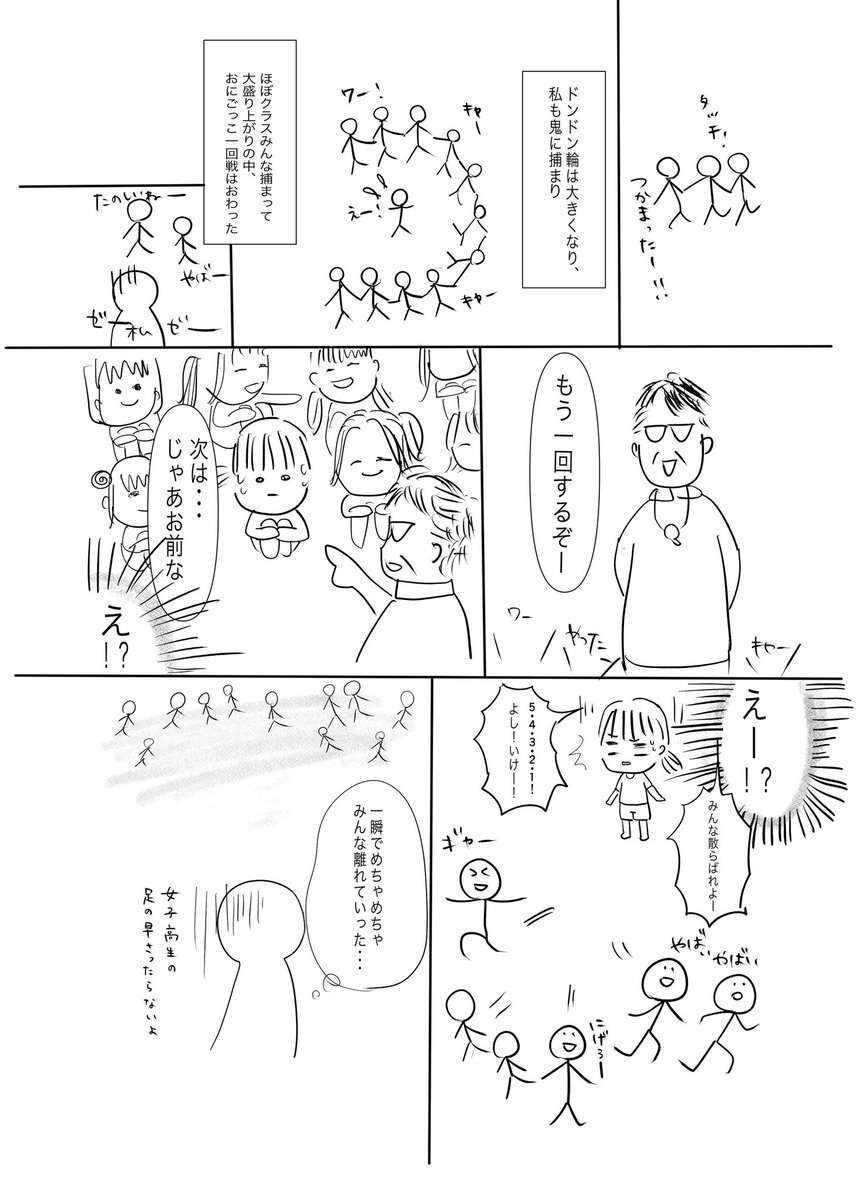 タッチ!
つかまったー!!
ドンドン輪は大きくなり、
私も鬼に捕まり
キャー
ワー!
えー!
キャー
ほぼクラスみんな捕まって
大盛り上がりの中、
おにごっこ一回戦はおわった
たのしいねー
やばー
ゼー
私
ゼー
もう一回するぞー
キャー
やったー
ワー
次は・・・
じゃあお前な
え
!?
えー!?
みんな散らばれよー
5・4・3・2・1!
よし!いけー!!
ギャー
やばい
やばい
にげろー
一瞬でめちゃめちゃ
みんな離れていった・・・
女子高生の
足の早さったらないよ